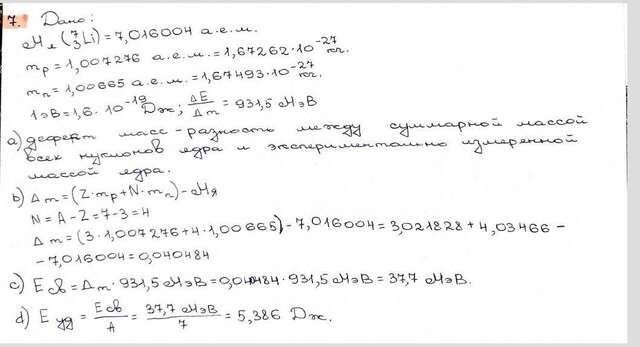 7. Дано:
Mя(⁷₃Li)=7,016004 а.е.м.
mp=1,007276 а.е.м.=1,67262·10⁻²⁷ кг.
mn=1,00665 а.е.м.=1,67493·10⁻²⁷ кг.
1эВ=1,6·10⁻¹⁹ Дж; ΔE/Δm = 931,5 МэВ
а) дефект масс-разность между суммарной массой
всех нуклонов ядра и экспериментально измеренной
массой ядра.
b) Δm=(Z·mp+N·mn)-Mя
N=A-Z=7-3=4
Δm=(3·1,007276+4·1,00665)-7,016004=3,021828+4,03466-
-7,016004=0,040484
c) Eсв=Δm·931,5МэВ=0,040484·931,5МэВ=37,7 МэВ.
d) Eуд = Eсв/A = 37,7 МэВ/7 = 5,386 Дж.